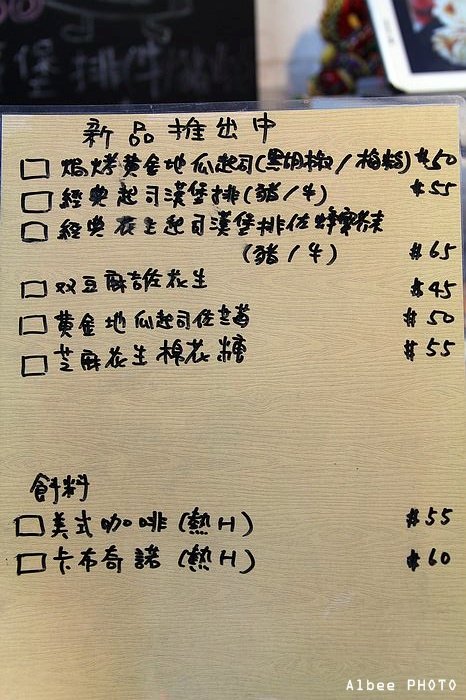 堡排
新品推出中
□ 焗烤黃金地瓜起司(黑胡椒/梅粉) $50
□ 經典起司漢堡排(豬/牛) $55
□ 經典花生起司漢堡排佐蜂蜜芥末
(豬/牛) $65
□ 双豆麻吉花生 $45
□ 黃金地瓜起司佐 $50
□ 芝麻花生棉花糖 $55
飲料
□ 美式咖啡(熱H) $55
□ 卡布奇諾(熱H) $60
Albee PHOTO